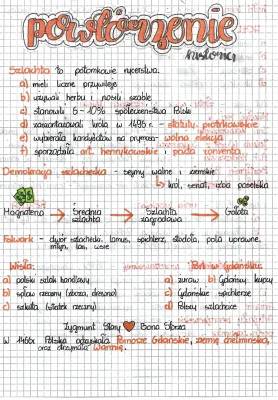 powtórzenie
historia
Szlachta to potomkowie rycerstwa.
a) mieli liczne przywileje
b) używali herbu i nosili szable
c) stanowili 8 - 10% społeczeństwa Polski
d) szlachta króla w 1496 r. - statuty piotrkowskie
e) wybierała kandydatów na - wolna elekcja
f) sporządzała art. henrykowskie i pacta conventa.
Demokracja szlachecka - sejmy walne i ziemskie
↳ król, senat, izba poselska
Magnateria → Średnia szlachta → Szlachta zagrodowa → Gołota
Folwark - dwór szlachecki, lamus, spichlerz, stodoła, pola uprawne, młyn, las, wsie
Wisła:
a) polski szlak handlowy
b) spław rzeczny (zboża, drewno)
c) szkuta (statek rzeczny)
Port w Gdańsku:
a) żuraw b) Gdańscy kupcy
c) Gdańskie spichlerze
d) Polscy szlachcice
Zygmunt Stary ❤ Bona Sforza
W 1466r. Polska Pomorze Gdańskie, ziemię chełmińską,
oraz Warmię.